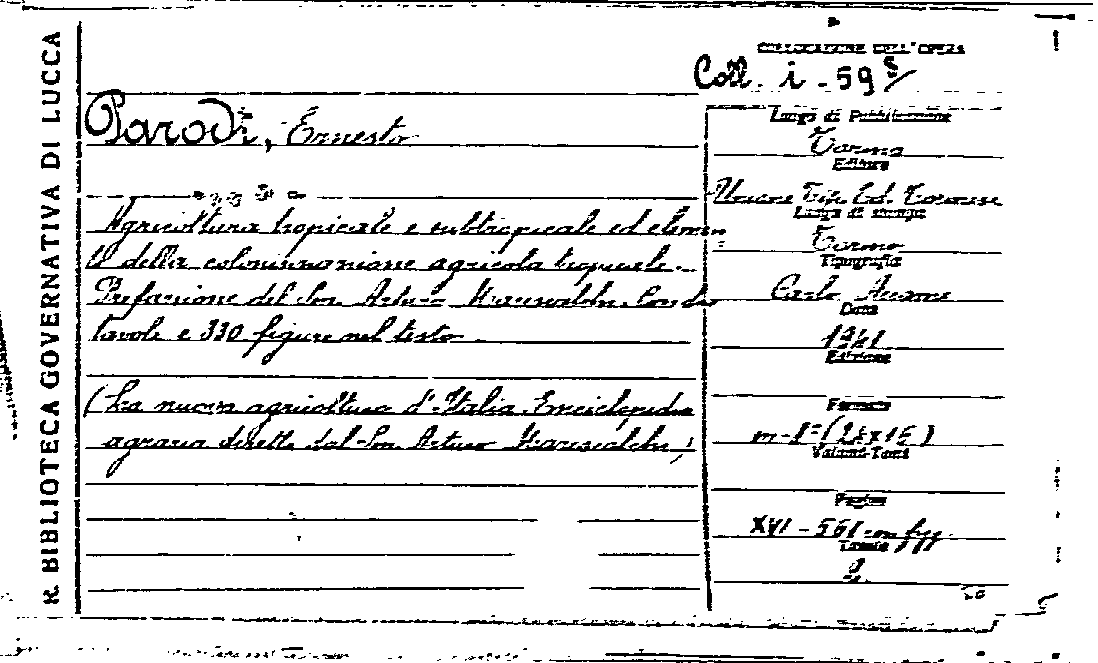 R. BIBLIOTECA GOVERNATIVA DI LUCCA
COLLOCAZIONE DELL'OPERA
Coll. i - 59
Parodi, Ernesto
Agricoltura tropicale e subtropicale ed elemen
ti della colonizzazione agricola tropicale.
Prefazione del Sen. Arturo Marescalchi. Con
tavole e 330 figure nel testo
(La nuova agricoltura d'Italia. Enciclopedia
agraria diretta dal Sen. Arturo Marescalchi)
Luogo di Pubblicazione
Torino
Editore
Unione Tip. Ed. Torinese
Luogo di stampa
Torino
Tipografia
Carlo Accame
Data
1941
Edizione
Formato
m-8° (25x16)
Volumi-Tomi
Pagine
XVI - 561 con figg.
Tavole